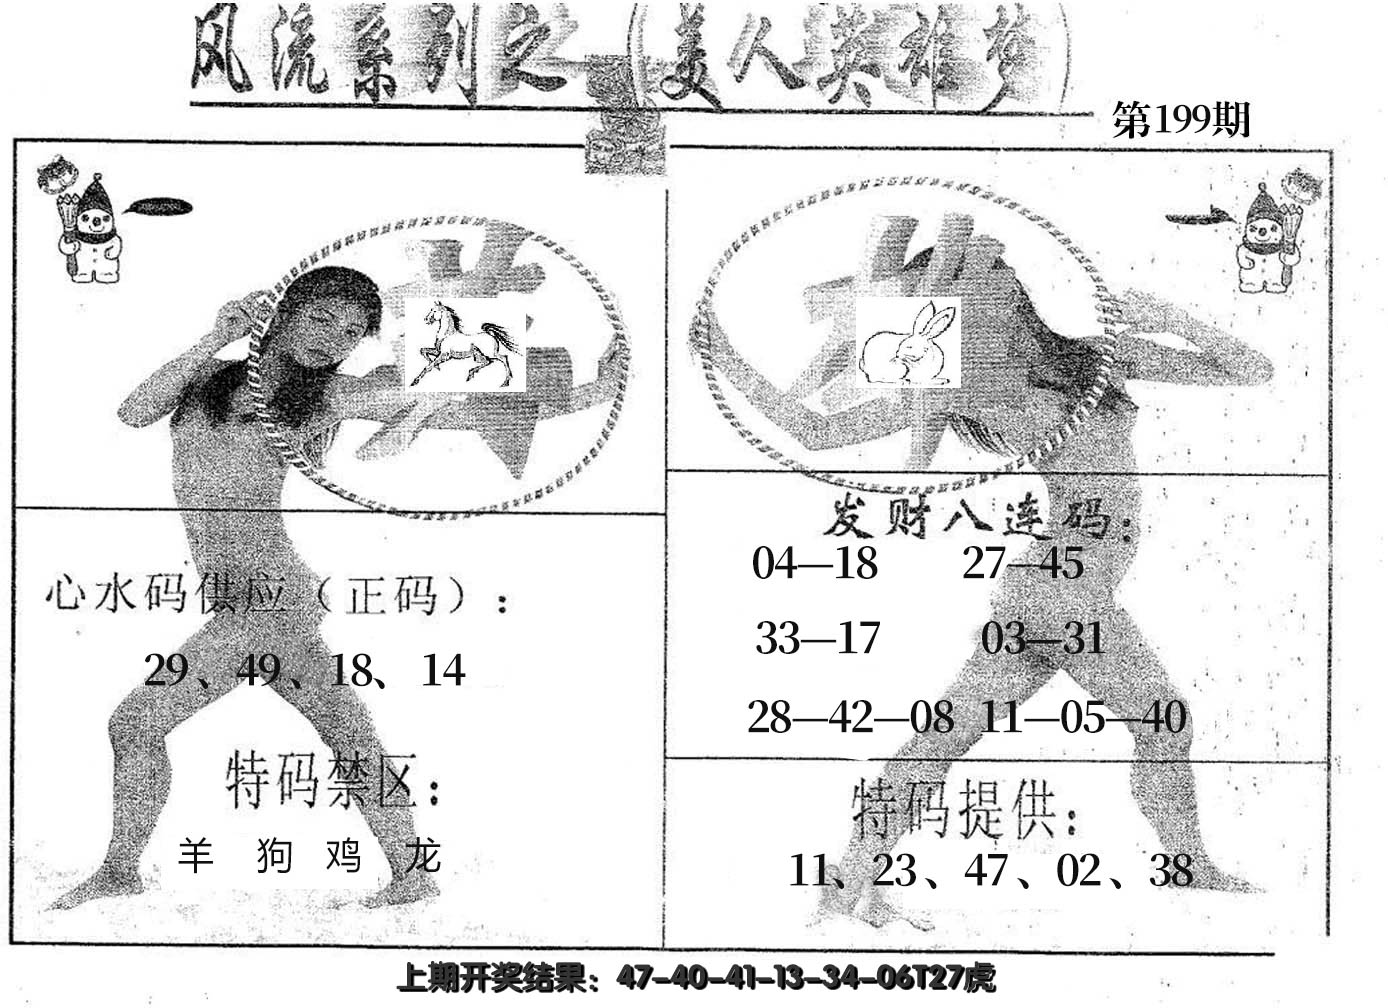 风流系列之 美人英雄梦
第199期
心水码供应（正码）：
29、49、18、14
特码禁区：
羊 狗 鸡 龙
发财八连码：
04—18 27—45
33—17 03—31
28—42—08 11—05—40
特码提供：
11、23、47、02、38
上期开奖结果：47-40-41-13-34-06T27虎